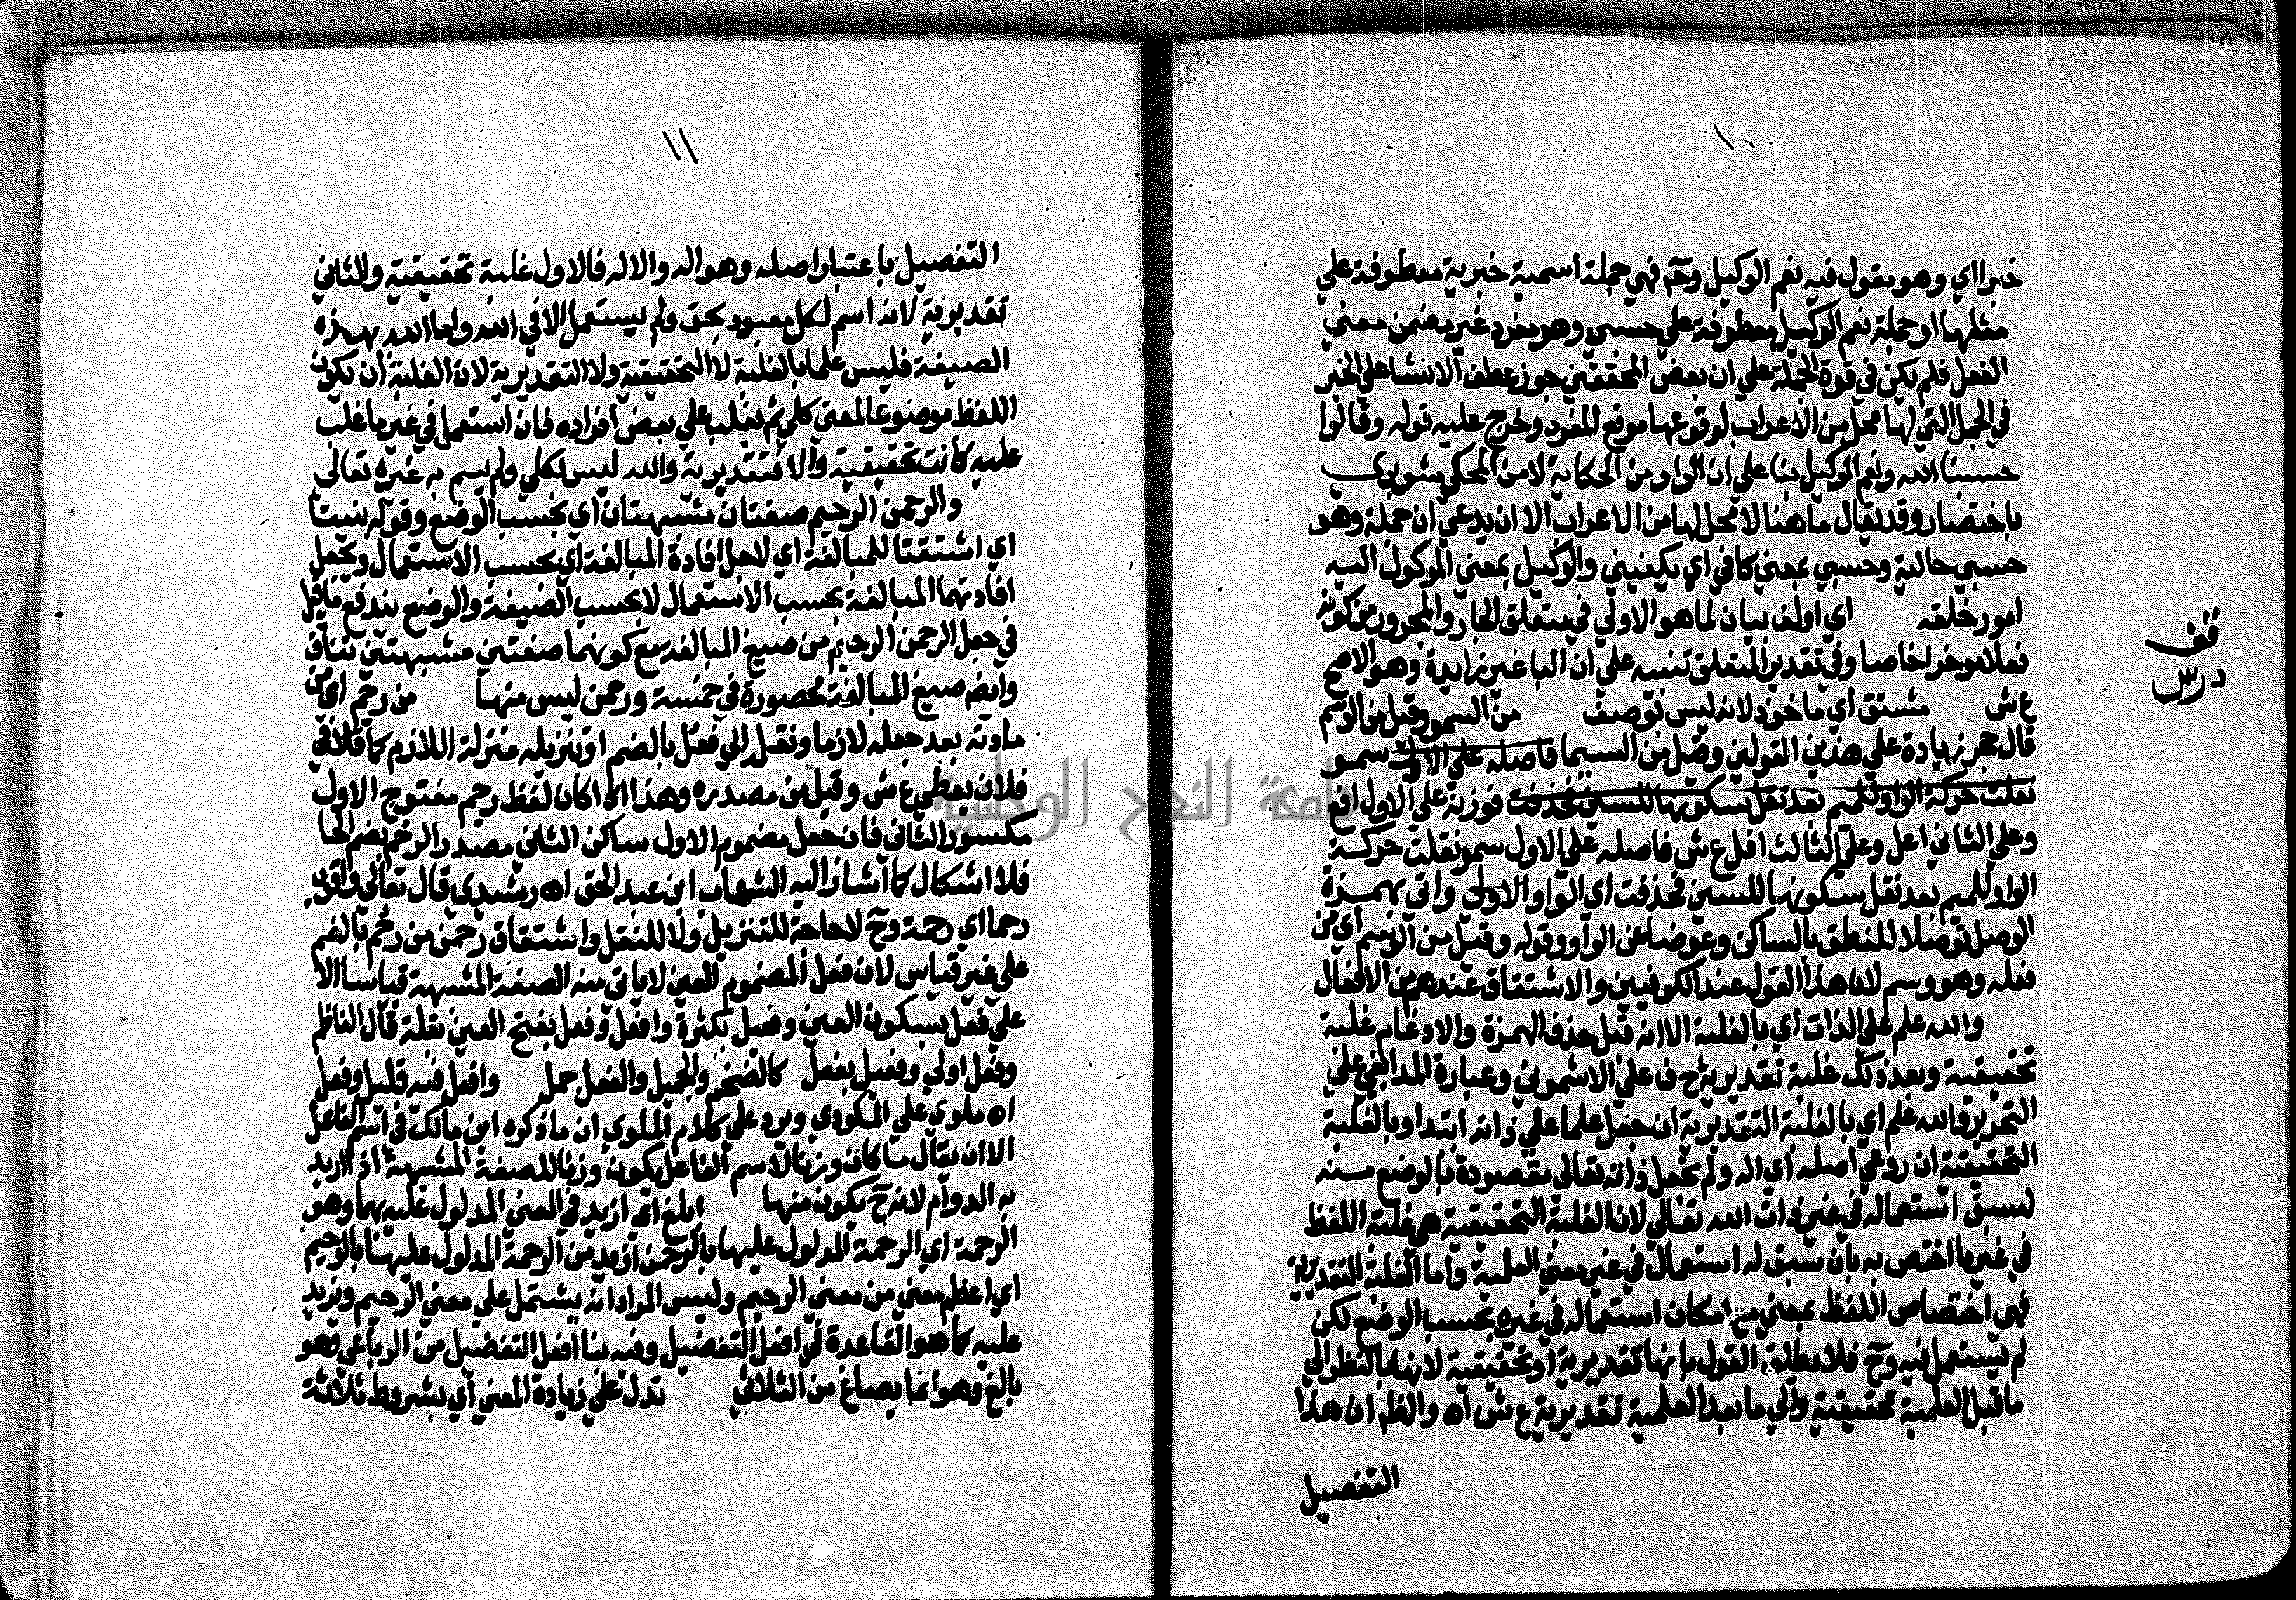 ١٠
خبرا اي وهو مقول فيه نعم الوكيل وح فهي جملة اسمية خبرية معطوفة علي
مثلها او جملة نعم الوكيل معطوفة علي حسبي وهو مفرد غير مضمن معني
الفعل فلم يكن في قوة الجملة علي ان بعض المحققين جوز عطف الانشا علي الخبر
في الجمل التي لها محل من الاعراب لوقوعها موقع المفرد وخرج عليه قوله وقالوا
حسبنا الله ونعم الوكيل بنا علي ان الواو من الحكاية لا من المحكي شوبري
باختصار وقد يقال ما هنا لا محل لها من الاعراب الا ان يدعي ان جملة وهو
حسبي حالية وحسبي بمعني كافي اي يكفيني والوكيل بمعني الموكول اليه
امور خلقه اي اولف بيان لما هو الاولي في متعلق الجار والمجرور من كونه
فعلا موخرا خاصا وفي تقدير المتعلق تنبيه علي ان البا غير زايدة وهو الاصح
ع ش مشتق اي ماخوذ لانه ليس توصيف من السمو وقيل من الوسم
قال حجر زيادة علي هذين القولين وقيل من السيما فاصله علي الاول سمو
نقلت حركة الواو للميم بعد نقل سكونها للسين فحذفت فوزنه علي الاول افع
وعلي الثاني اعل وعلي الثالث افل ع ش فاصله علي الاول سمو نقلت حركة
الواو للميم بعد نقل سكونها للسين فحذفت اي الواو الاولي واتي بهمزة
الوصل توصلا للنطق بالساكن وعوضا عن الواو وقوله وقيل من الوسم اي من
فعله وهو وسم لان هذا القول عند الكوفيين والاشتقاق عندهم من الافعال
والله علم علي الذات اي بالغلبة الا انه قبل حذف الهمزة والادغام غلبة
تحقيقية وبعد ذلك غلبة تقديرية ح ف علي الاشموني وعبارة المدابغي علي
التحرير فالله علم اي بالغلبة التقديرية ان جعل علما علي ذاته ابتدا وبالغلبة
التحقيقية ان روعي اصله اي اله ولم تجعل ذاته تعالي مقصودة بالوضع منه
لسبق استعماله في غير ذات الله تعالي لان الغلبة التحقيقية هي غلبة اللفظ
في غير ما اختص به بان سبق له استعمال في غير معني العلمية واما الغلبة التقديرية
فهي اختصاص اللفظ بمعني مع امكان استعماله في غيره بحسب الوضع لكن
لم يستعمل فيه وح فلا يطلق القول بانها تقديرية او تحقيقية لانها بالنظر الي
ما قبل العلمية تحقيقية والي ما بعد العلمية تقديرية ع ش اه والظاهر ان هذا
التفصيل
قف
درس
١١
التفصيل باعتبار اصله وهو اله والاله فالاول غلبة تحقيقية وللثاني
تقديرية لانه اسم لكل معبود بحق ولم يستعمل الا في الله واما الله بهذه
الصيغة فليس علما بالغلبة لا التحقيقية ولا التقديرية لان الغلبة ان يكون
اللفظ موضوعا لمعني كلي ثم يغلب علي بعض افراده فان استعمل في غير ما غلب
عليه كانت تحقيقية والا فتقديرية والله ليس بكلي ولم يسم به غيره تعالي
والرحمن الرحيم صفتان مشبهتان اي بحسب الوضع وقوله بنيتا
اي اشتقتا للمبالغة اي لاجل افادة المبالغة اي بحسب الاستعمال وبجعل
افادتهما المبالغة بحسب الاستعمال لا بحسب الصيغة والوضع يندفع ما قيل
في جعل الرحمن الرحيم من صيغ المبالغة مع كونهما صفتين مشبهتين تناف
وايض صيغ المبالغة محصورة في خمسة ورحمن ليس منها من رحم اي من
مادته بعد جعله لازما ونقل الي فعل بالضم او تنزيله منزلة اللازم كما في
فلان يعطي ع ش وقيل من مصدره وهذا اذا كان لفظ رحم مفتوح الاول
مكسور الثاني فان جعل مضموم الاول ساكن الثاني مصدر الرحم بضم الحا
فلا اشكال كما اشار اليه الشهاب ابن عبد الحق اه رشيدي قال تعالي واقرب
رحما اي رحمة وح لا حاجة للتنزيل ولا للنقل واشتقاق رحمن من رحم بالضم
علي غير قياس لان فعل المضموم العين لا ياتي منه الصفة المشبهة قياسا الا
علي فعل بسكون العين وفعيل بكثرة وافعل وفعل بفتح العين بقلة قال الناظم
وفعل اولي وفعيل بفعل كالضخم والجميل والفعل جمل وافعل فيه قليل وفعل
اه ملوي علي المكودي ويرد علي كلام الملوي ان ما ذكره ابن مالك في اسم الفاعل
الا ان يقال ما كان وزنا لاسم الفاعل يكون وزنا للصفة المشبهة اذا اريد
به الدوام لانه ح يكون منها ابلغ اي ازيد في المعني المدلول عليه بهما وهو
الرحمة اي الرحمة المدلول عليها بالرحمن ازيد من الرحمة المدلول عليها بالرحيم
اي اعظم معني من معني الرحيم وليس المراد انه يشتمل علي معني الرحيم ويزيد
عليه كما هو القاعدة في افعل التفضيل وفيه بنا افعل التفضيل من الرباعي وهو
بالغ وهو انما يصاغ من الثلاثي تدل علي زيادة المعني اي بشروط ثلاثة
جامعة النجاح الوطنية